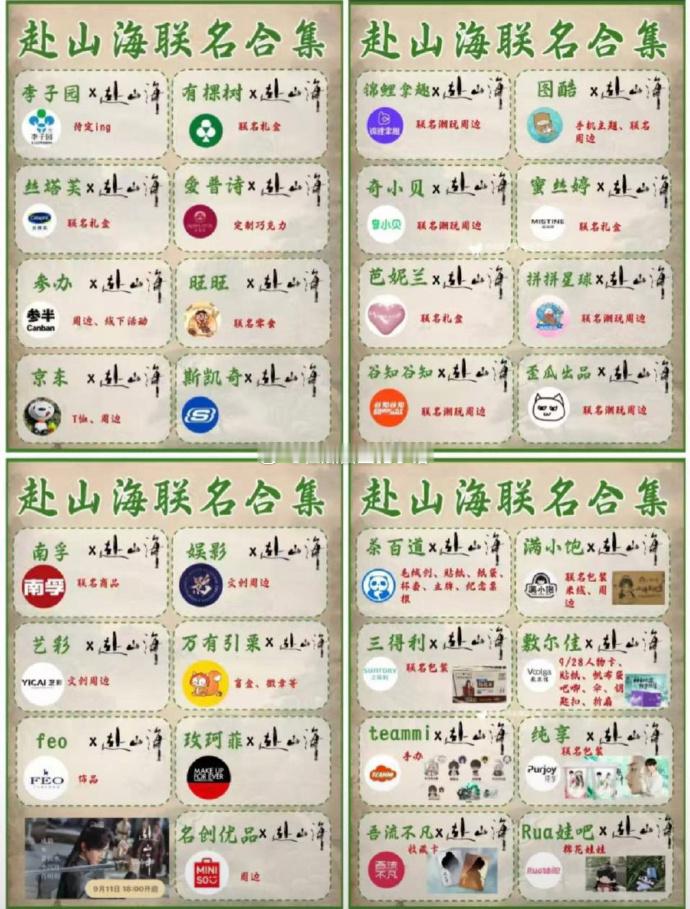 赴山海联名合集
李子园 x 赴山海
李子园
待定ing
有棵树 x 赴山海
联名礼盒
丝塔芙 x 赴山海
Cetaphil
丝塔芙
联名礼盒
爱普诗 x 赴山海
定制巧克力
参办 x 赴山海
参半
Canban
周边、线下活动
旺旺 x 赴山海
联名零食
京东 x 赴山海
T恤、周边
斯凯奇 x 赴山海
赴山海联名合集
锦鲤拿趣 x 赴山海
锦鲤拿趣
联名潮玩周边
图酷 x 赴山海
手机主题、联名
周边
奇小贝 x 赴山海
奇小贝
联名潮玩周边
蜜丝婷 x 赴山海
MISTINE
联名礼盒
芭妮兰 x 赴山海
联名礼盒
拼拼星球 x 赴山海
联名潮玩周边
谷知谷知 x 赴山海
谷知谷知
联名潮玩周边
歪瓜出品 x 赴山海
联名潮玩周边
赴山海联名合集
南孚 x 赴山海
南孚
联名商品
娱影 x 赴山海
文创周边
艺彩 x 赴山海
YICAI 艺彩
文创周边
万有引栗 x 赴山海
盲盒、徽章等
feo x 赴山海
FEO
饰品
玫珂菲 x 赴山海
MAKE UP
FOR EVER
9月11日 18:00开启
名创优品 x 赴山海
MINI
SO
周边
赴山海联名合集
茶百道 x 赴山海
毛绒刨、贴纸、纸袋、
杯套、立牌、纪念票
根
满小饱 x 赴山海
满小饱
联名包装
米线、周
边
三得利 x 赴山海
SUNTORY
三得利
联名包装
敷尔佳 x 赴山海
Voolga
敷尔佳
9/28人物卡、
贴纸、帆布袋
吧唧、伞、钥
匙扣、折扇
teammi x 赴山海
TEAMMI
手办
纯享 x 赴山海
Purjoy
纯享
联名包装
吾流不凡 x 赴山海
吾流
不凡
收藏卡
Rua娃吧 x 赴山海
Rua娃吧
棉花娃娃